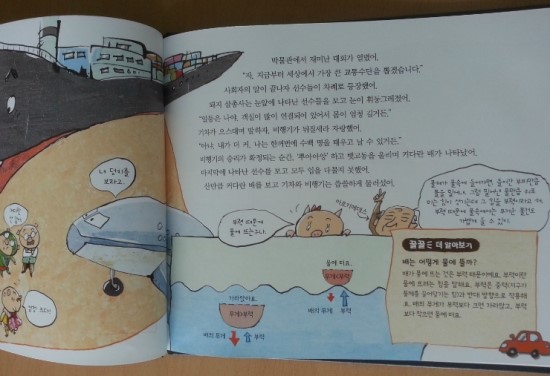 박물관에서 재미난 대회가 열렸어.
"자, 지금부터 세상에서 가장 큰 교통수단을 뽑겠습니다."
사회자의 말이 끝나자 선수들이 차례로 등장했어.
돼지 삼총사는 눈앞에 나타난 선수들을 보고 눈이 휘둥그레졌어.
"일등은 나야. 객실이 많이 연결되어 있어서 몸이 엄청 길거든."
기차가 으스대며 말하자, 비행기가 뒤질세라 자랑했어.
"아냐, 내가 더 커. 나는 한꺼번에 수백 명을 태우고 날 수 있거든."
비행기의 승리가 확정되는 순간, '뿌아아앙' 하고 뱃고동을 울리며 커다란 배가 나타났어.
마지막에 나타난 선수를 보고 모두 입을 다물지 못했어.
산만큼 커다란 배를 보고 기차와 비행기는 슬금슬금 물러섰어.
내 덩치를
보라고.
부력 때문에
물에 뜨는구나.
아르키메데스
꿀꿀 더 알아보기
배는 어떻게 물에 뜰까?
배가 물에 뜨는 것은 부력 때문이에요. 부력이란
물에 뜨려는 힘을 말해요. 부력은 중력(지구가
물체를 끌어당기는 힘)과 반대 방향으로 작용해
요. 배의 무게가 부력보다 크면 가라앉고, 부력
보다 작으면 물에 떠요.
물에 떠요.
무게<부력
배의 무게
부력
가라앉아요.
무게>부력
배의 무게
부력